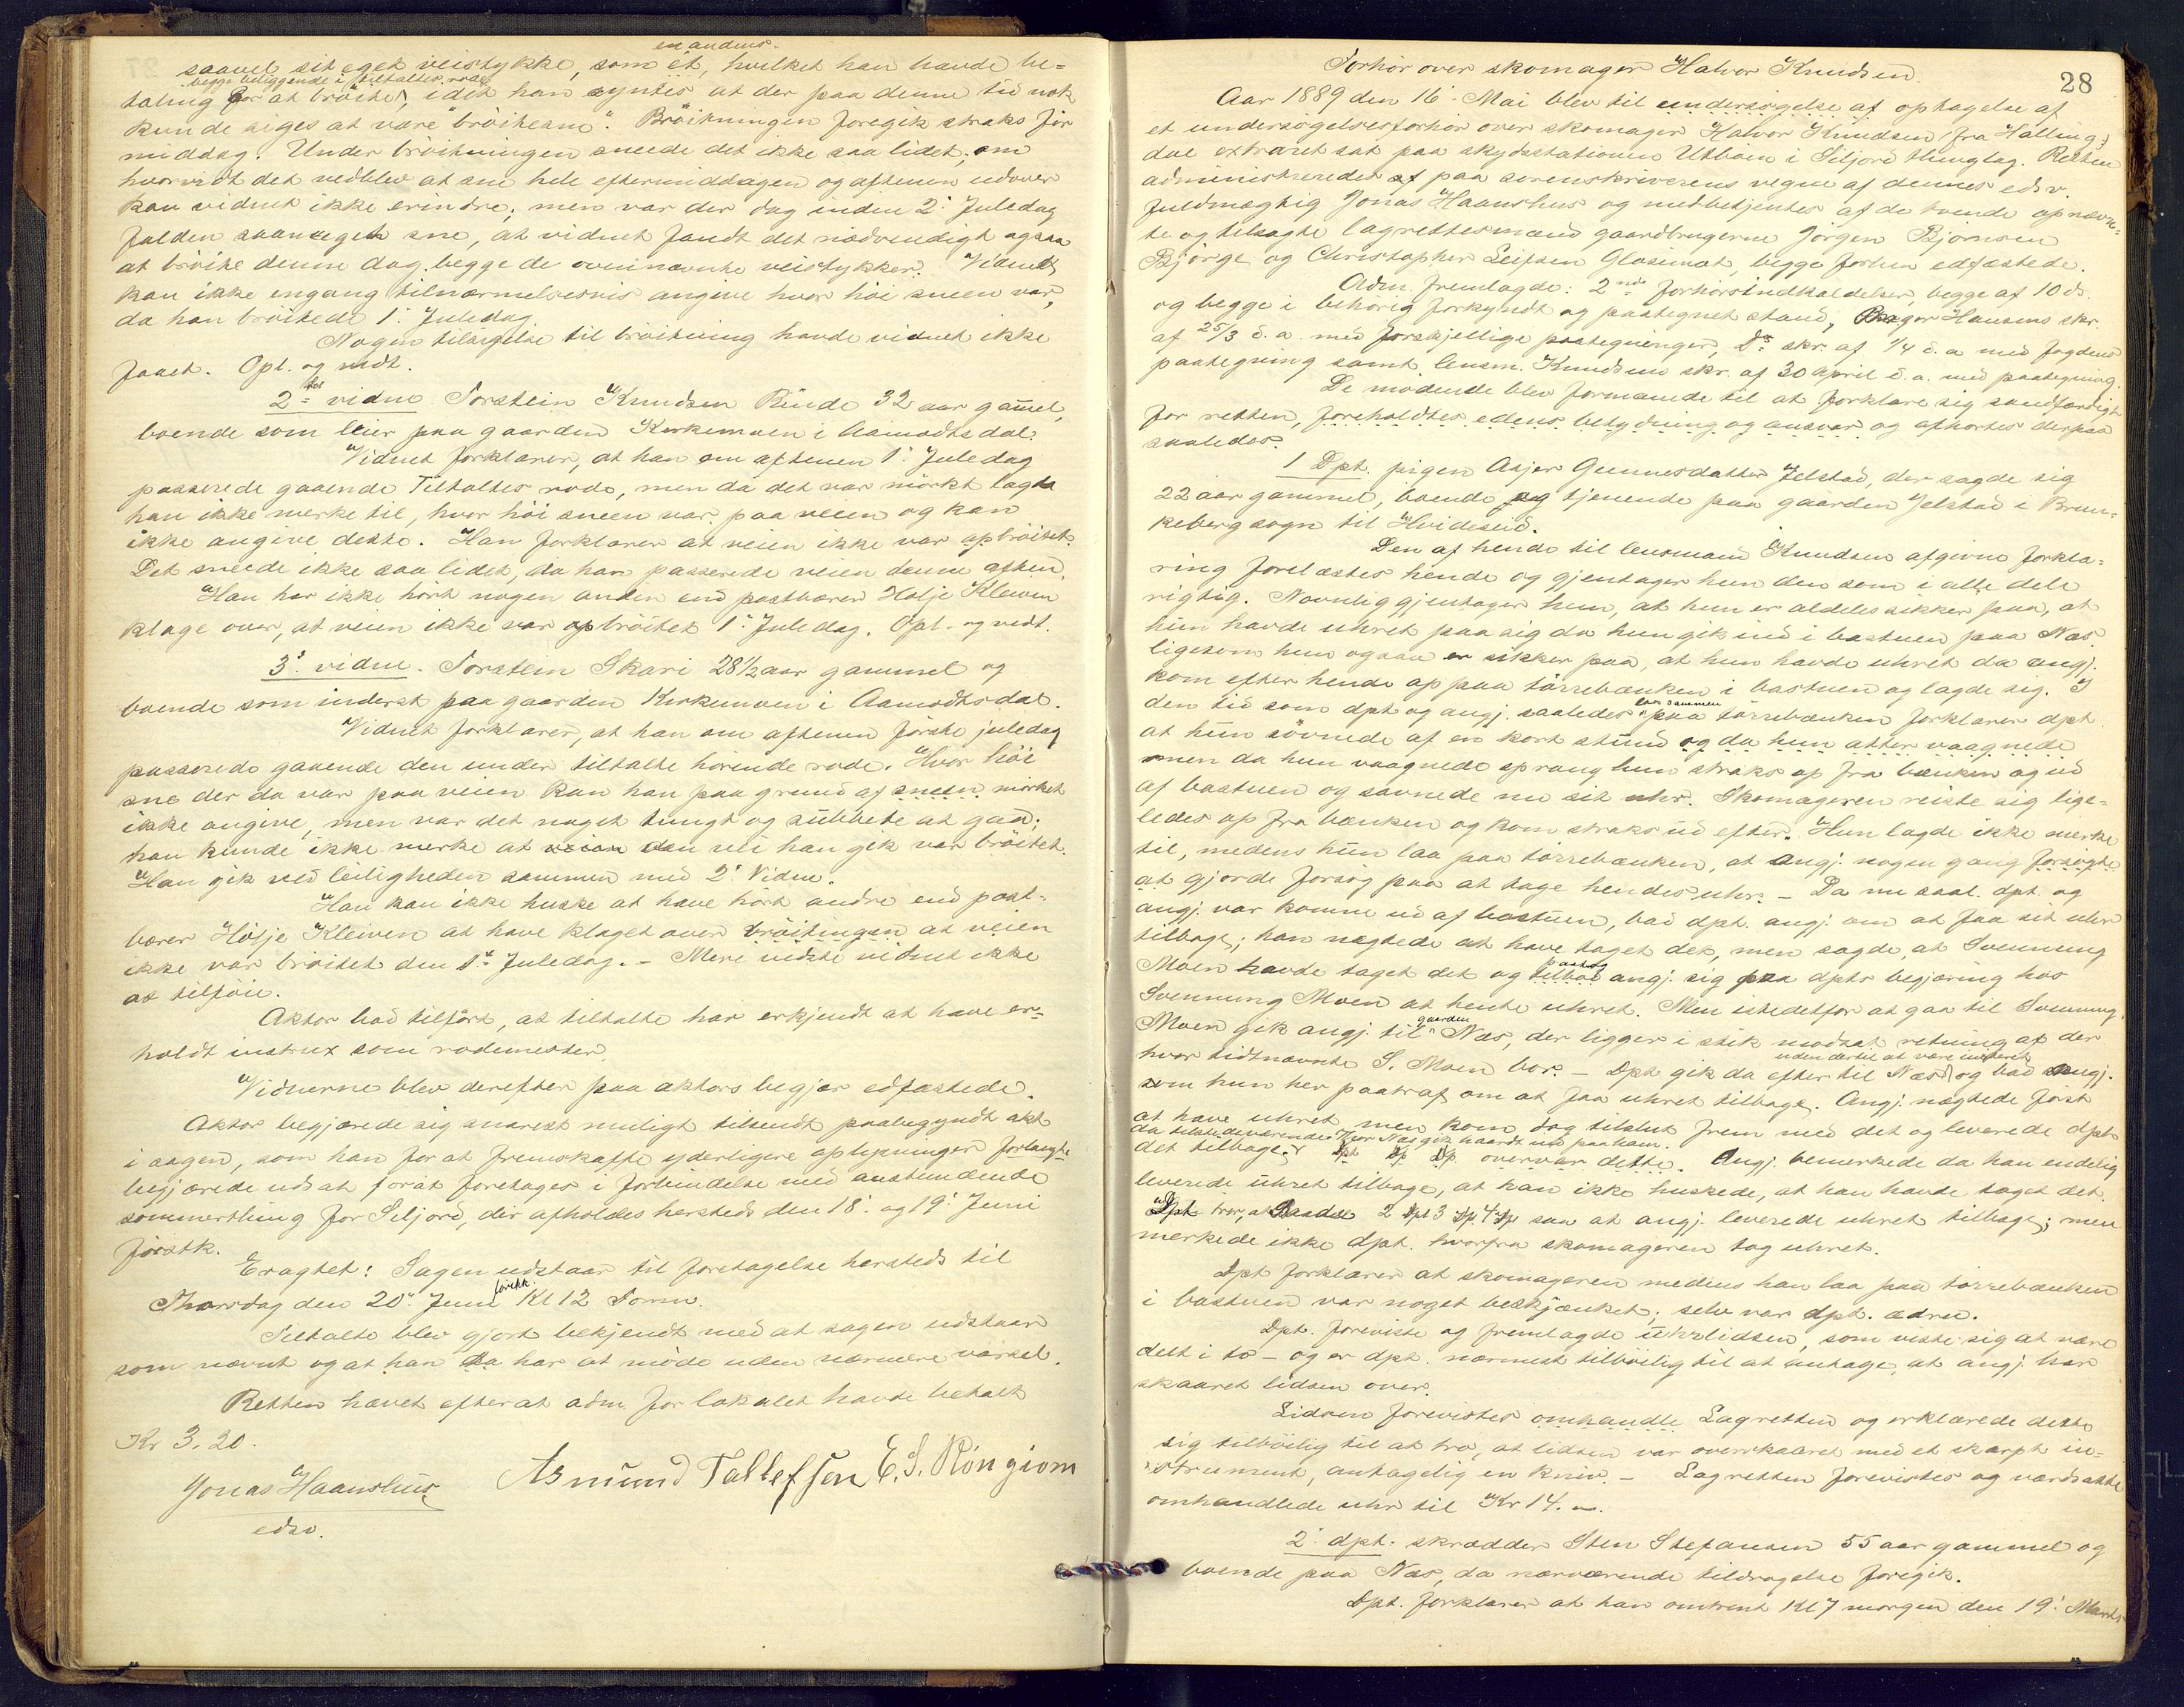 en andens
saavel sit eget veistykke, som et, hvilket han havde be-
begge beliggende i tiltaltes rode
taling for at brøite, idet han syntes at der paa denne tid nok
kunde siges at være "brøitesne". Brøitningen foregik straks før
middag. Under brøitningen sneede det ikke saa lidet; om
hvorvidt det vedblev at sne hele eftermiddagen og aftenen udover
kan vidnet ikke erindre; men var der dog inden 2' Juledag
falden saameget sne, at vidnet fandt det nødvendigt ogsaa
at brøite denne dag begge de ovennævnte veistykker. Vidnet
kan ikke engang tilnærmelsesvis angive hvor høi sneen var,
da han brøitede 1' Juledag.
Nogen tilsigelse til brøitning havde vidnet ikke
faaet. Opl. og vedt.
2det vidne Torstein Knudsen Rinde 32 aar gammel,
boende som leier paa gaarden Kirkemoen i Aamodtsdal.
Vidnet forklarer, at han om aftenen 1' Juledag
passerede gaaende Tiltaltes rode, men da det var mørkt lagde
han ikke merke til, hvor høi sneen var paa veien og kan
ikke angive dette. Han forklarer at veien ikke var opbrøitet.
Det sneede ikke saa lidet, da han passerede veien denne aften.
Han har ikke hørt nogen anden end postbærer Hølje Kleiven
klage over, at veien ikke var opbrøitet 1' Juledag. Opl. og vedt.
3' vidne. Torstein Skari 28 1/2 aar gammel og
boende som inderst paa gaarden Kirkemoen i Aamodtsdal.
Vidnet forklarer, at han om aftenen første juledag
passerede gaaende den under tiltalte hørende rode. Hvor høi
sne der da var paa veien kan han paa grund af sneen mørket
ikke angive, men var det noget tungt og at gaa;
han kunde ikke merke at veien den vei han gik var brøitet.
Han gik ved leiligheden sammen med 2' Vidne.
Han kan ikke huske at have hørt andre end post-
bærer Hølje Kleiven at have klaget over brøitingen at veien
ikke var brøitet den 1ste Juledag. – Mere vidste vidnet ikke
at tilføie.
Aktor bad tilført, at tiltalte har erkjendt at have er-
holdt instrux som rodemester.
Vidnerne blev derefter paa aktors begjær edfæstede.
Aktor begjærede sig snarest muligt tilsendt paabegyndt akt
i sagen, som han for at fremskaffe yderligere oplysninger forlangte
begjærede udsat for at foretages i forbindelse med anstundende
sommerthing for Siljord, der afholdes hersteds den 18' og 19' Juni
førstk.
Eragtet: Sagen udstaar til foretagelse hersteds til
førstk.
Thorsdag den 20' Juni Kl 12 Form.
Tiltalte blev gjort bekjendt med at sagen udstaar
som nævnt og at han da har at møde uden nærmere varsel.
Retten hævet efterat adm. for lokalet havde betalt
Kr 3.20.
Jonas Haanshus Asmund Tallefsen E. S. Rongiom
edsv.
28
Forhør over skomager Halvor Knudsen.
Aar 1889 den 16' Mai blev til undersøgelse af optagelse af
et undersøgelsesforhør over skomager Halvor Knudsen fra Halling-
dal extraret sat paa skydsstationen Utbøen i Siljord thinglag. Retten
administreredes af paa sorenskriverens vegne af dennes edsv.
fuldmægtig Jonas Haanshus og medbetjentes af de tvende opnævn-
te og tilsagte lagrettesmænd gaardbrugerne Jørgen Bjørnsen
Bjørge og Christopher Leifsen Glosemot, begge forhen edfæstede.
Adm. fremlagde: 2nde forhørsindkaldelser, begge af 10 ds.
og begge i behørig forkyndt og paategnet stand, Hansens skr.
af 25/3 d.a. med forskjellige paategninger, Ds skr. af 1/4 d.a. med fogdens
paategning samt lensm. Knudsens skr. af 30 april d.a. med paategning.
De mødende blev formanede til at forklare sig sandfærdigt
for retten, foreholdtes edens betydning og ansvar og afhørtes derpaa
saaledes:
1 Dpt. pigen Asjer Gunnesdatter Jelstad, der sagde sig
22 aar gammel, boende og tjenende paa gaarden Jelstad i Brun-
keberg sogn til Hvideseid.
Den af hende til lensmand Knudsen afgivne forkla-
ring forelæstes hende og gjentager hun den som i alle dele
rigtig. Navnlig gjentager hun, at hun er aldeles sikker paa, at
hun havde uhret paa sig da hun gik ind i bastuen paa Næs
ligesom hun ogsaa er sikker paa, at hun havde uhret da angj.
kom efter hende op paa tørrebænken i bastuen og lagde sig. I
laa sammen
den tid som dpt og angj. saaledes paa tørrebænken forklarer dpt.
at hun søvnede af en kort stund og da hun atter vaagnede
men da hun vaagnede sprang hun straks op fra bænken og ud
af bastuen og savnede nu sit uhr. Skomageren reiste sig lige-
ledes op fra bænken og kom straks ud efter. Hun lagde ikke merke
til, medens hun laa paa tørrebænken, at angj. nogen gang forsøgte
at gjorde forsøg paa at tage hendes uhr. – Da nu saal. dpt. og
angj. var komne ud af bastuen, bad dpt. angj. om at faa sit uhr
tilbage; han nægtede at have taget det, men sagde, at Svennung
paatog
Moen havde taget det og tilbød angj. sig paa dpts begjæring hos
Svennung Moen at hente uhret. Men istedetfor at gaa til Svennung
gaarden
Moen gik angj. til Næs, der ligger i stik modsat retning af der
uden dertil at være inviteret
hvor tidtnævnte S. Moen bor. – Dpt gik da efter til Næs og bad angj.
som hun her paatraf om at faa uhret tilbage. Angj. nægtede først
at have uhret men kom dog tilslut frem med det og leverede dpt
da tilstedeværende Ivar Næs gik haardt ind paa ham.
det tilbage. Dpt Dp Dp overvar dette. Angj. bemerkede da han endelig
leverede uhret tilbage, at han ikke huskede, at han havde taget det.
Dpt tror, at 2 Dpt 3 Dp 4 Dp saa at angj. leverede uhret tilbage; men
merkede ikke dpt. hvorfra skomageren tog uhret.
Dpt forklarer at skomageren medens han laa paa tørrebænken
i bastuen var noget beskjænket; selv var dpt. ædru.
Dpt. foreviste og fremlagde uhrlidsen, som viste sig at være
delt i to – og er dpt. nærmest tilbøielig til at antage, at angj. har
skaaret lidsen over.
Lidsen forevistes omhandle Lagretten og erklærede dette
sig tilbøielig til at tro, at lidsen var overskaaret med et skarpt in-
strument, antagelig en kniv. – Lagretten forevistes og værdsatte
omhandlede uhr til Kr 14.
2' dpt. skrædder Sten Stefansen 55 aar gammel og
boende paa Næs, da nærværende tildragelse foregik.
Dpt. forklarer at han omtrent Kl 7 morgen den 19' Marts